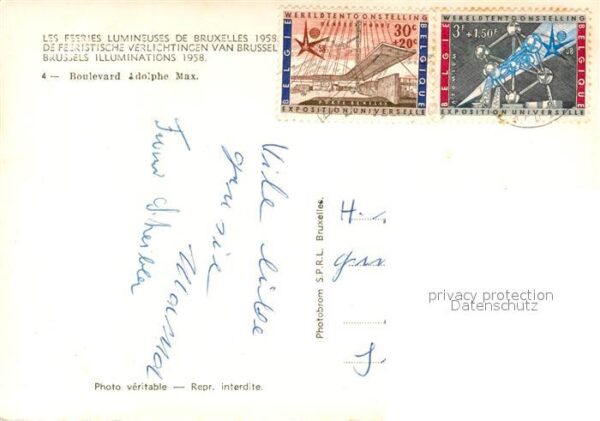 LES FEERIES LUMINEUSES DE BRUXELLES 1958.
DE FEERISTISCHE VERLICHTINGEN VAN BRUSSEL
BRUSSELS ILLUMINATIONS 1958.
4 — Boulevard Adolphe Max.
WERELDTENTOONSTELLING
BELGIE
30c
+20c
58
BELGIQUE
EXPOSITION UNIVERSELLE
WERELDTENTOONSTELLING
BELGIE
3F+1.50F
58
BELGIQUE
EXPOSITION UNIVERSELLE
Viele liebe
Photobrom S.P.R.L. Bruxelles.
H.
privacy protection
Datenschutz
Photo véritable — Repr. interdite.